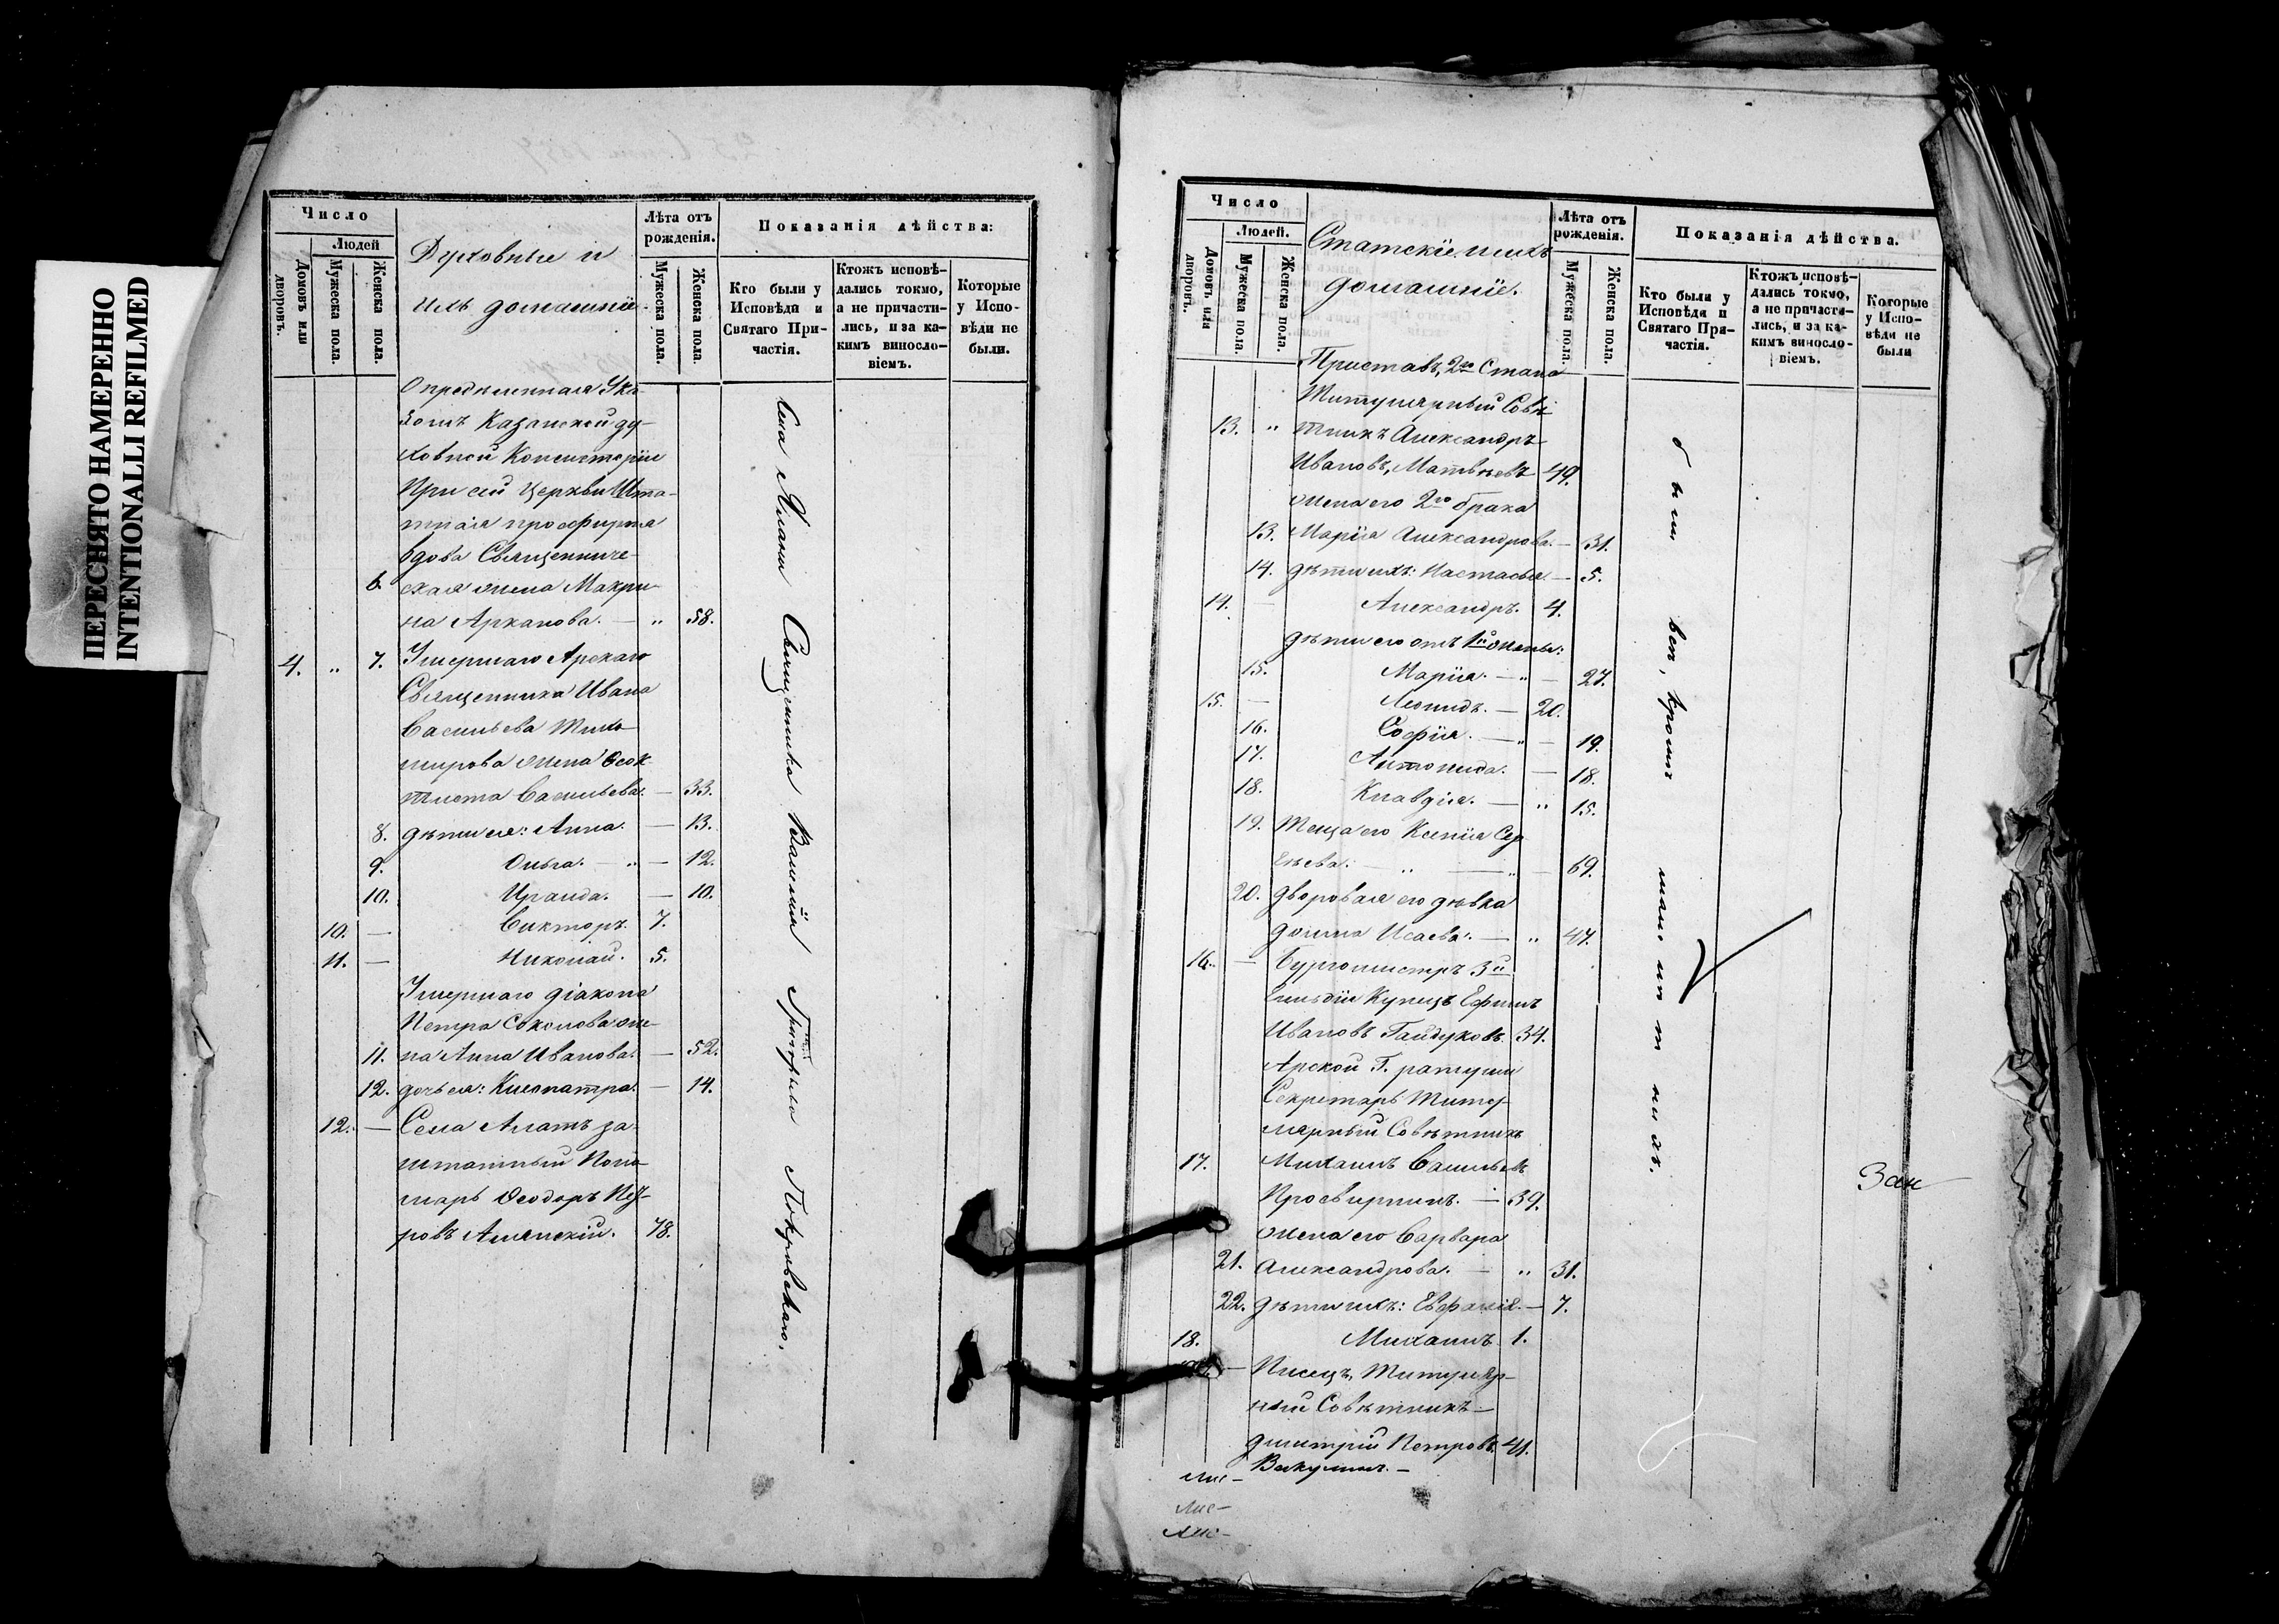 ПЕРЕСНЯТО НАМЕРЕННО
INTENTIONALLI REFILMED
Число
Людей
Домовъ или дворовъ.
Мужеска пола.
Женска пола.
Духовные и
ихъ домашніе
Лѣта отъ рожденія.
Мужеска пола.
Женска пола.
Показанія дѣйства:
Кто были у Исповѣди и Святаго Причастія.
Ктожъ исповѣдались токмо, а не причастились, и за какимъ винословіемъ.
Которые у Исповѣди не были.
Опредѣленная Ука-
зомъ Казанской ду-
ховной Консисторіи
При сей Церкви Шта-
тная просфирня
вдова Священниче-
6. ская жена Макри-
на Арканова. — „ 58.
4. „ 7. Умершаго Арскаго
Священника Ивана
Васильева Тихо-
мирова жена Ѳеок-
тиста Васильева. — 33.
8. дѣти ея: Анна. — 13.
9. Ольга. — „ — 12.
10. Ираида. — 10.
10. — Викторъ. 7.
11. — Николай. 5.
Умершаго діакона
Петра Соколова же-
11. на Анна Иванова. — 52.
12. дочь ея: Клеопатра. — 14.
12. — Села Алатъ за-
штатный Поно-
марь Ѳеодоръ Пет-
ровъ 78.
Села Священника Василій Григорьевъ Покровскаго.
Число
Людей.
Домовъ или дворовъ.
Мужеска пола.
Женска пола.
Статскіе и ихъ
домашніе.
Лѣта отъ рожденія.
Мужеска пола.
Женска пола.
Показанія дѣйства.
Кто были у Исповѣди и Святаго Причастія.
Ктожъ исповѣдались токмо, а не причастились, и за какимъ винословіемъ.
Которые у Исповѣди не были
Приставъ, 2го Стана
Титулярный Совѣ-
13. „ тникъ Александръ
Ивановъ, Матвѣевъ 49.
жена его 2го брака
13. Марія Александрова. — 31.
14. дѣти ихъ: Настасья. — 5.
14. — Александръ. 4.
дѣти его отъ 1й жены:
15. Марія. — „ — 27.
15. — Леонидъ. — 20.
16. Софія. — „ — 19.
17. Антонида. — 18.
18. Клавдія. — „ 15.
19. Теща его Ксенія Сер-
гѣева. „ — „ — 69.
20. дворовая его дѣвка
Домна Исаева. — „ 47.
16. — Бургомистръ 3й
Гильдіи Купецъ Ефимъ
Ивановъ Гайдуковъ. 34.
Арской Г. ратуши
Секретарь Титу-
лярный Совѣтникъ
17. Михаилъ Васильевъ
Просвирнинъ. — 39.
жена его Варвара
21. Александрова. — „ 31.
22. дѣти ихъ: Евфалія. — 7.
18. Михаилъ 1.
— Писецъ, Титуляр-
ный Совѣтникъ —
Димитрій Петровъ. 41.
Викулинъ. —
были всѣ, кромѣ малолѣтнихъ.
Зак